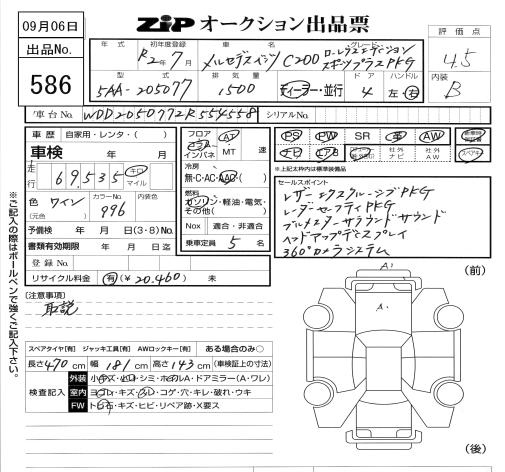 09月06日
ZIP オークション出品票
出品No.
586
評価点
4.5
内装
B
年式
初年度登録
R2年7月
車名
メルセデスベンツ C200
グレード
ローレウスエディション
スポーツプラスPKG
型式
5AA-205077
排気量
1500
ディーラー・並行
ドア
4
ハンドル
左・右
車台No.
WDD2050772R554558
シリアルNo.
車歴 自家用・レンタ・( )
車検 年 月
走行
69,535
キロ
マイル
色 ワイン
(元色)
カラーNo.
996
内装色
予備検 年 月 日(3・8)No.
書類有効期限 年 月 日迄
登録No.
リサイクル料金 有(¥20.460) 無
フロア
コラム
インパネ
AT
MT 速
冷房
無・C・AC・AAC
燃料
ガソリン・軽油・電気・
その他( )
Nox 適合・非適合
乗車定員 5 名
PS PW SR 革 AW
ナビ エアB
社外
ナビ
社外
AW
※上記太枠内は標準装備品
セールスポイント
レザーエクスクルーシブPKG
レーダーセーフティPKG
ブルメスターサラウンドサウンド
ヘッドアップディスプレイ
360°カメラシステム
※ご記入の際はボールペンで強くご記入下さい。
(注意事項)
取説
スペアタイヤ[有] ジャッキ工具[有] AWロックキー[有] ある場合のみ○
長さ470cm 幅181cm 高さ143cm (車検証上の寸法)
検査記入
外装
室内 ヨゴレ・キズ・スレ・コゲ・穴・キレ・破れ・ウキ
FW トビ石・キズ・ヒビ・リペア跡・X要ス
(前)
A1
A.
(後)